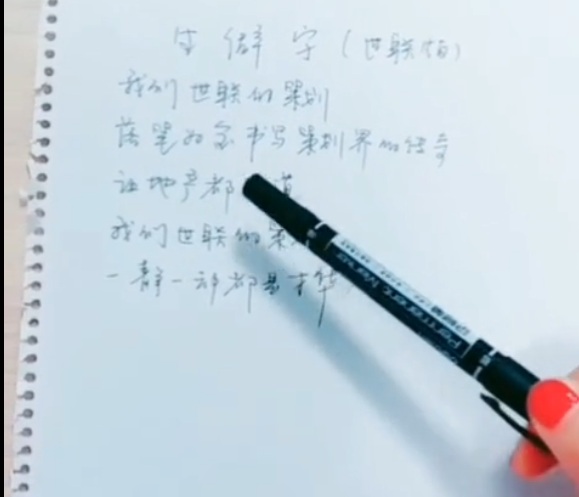 生僻字（世联版）
我们世联的策划
落笔为金书写策划界的传奇
让地产都 道
我们世联的策
一静一动都是才华